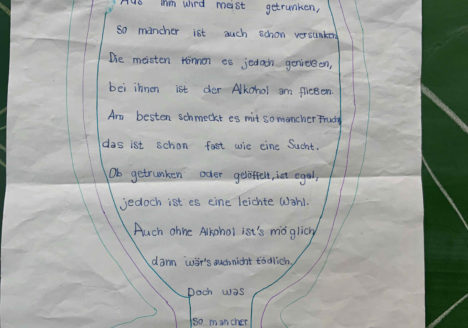 Aus ihm wird meist getrunken,
so mancher ist auch schon versunken.
Die meisten können es jedoch genießen,
bei ihnen ist der Alkohol am fließen.
Am besten schmeckt es mit so mancher Frucht,
das ist schon fast wie eine Sucht.
Ob getrunken oder gelöffelt, ist egal,
jedoch ist es eine leichte Wahl.
Auch ohne Alkohol ist's möglich
dann wär's auch nicht tödlich.
Doch was
so mancher